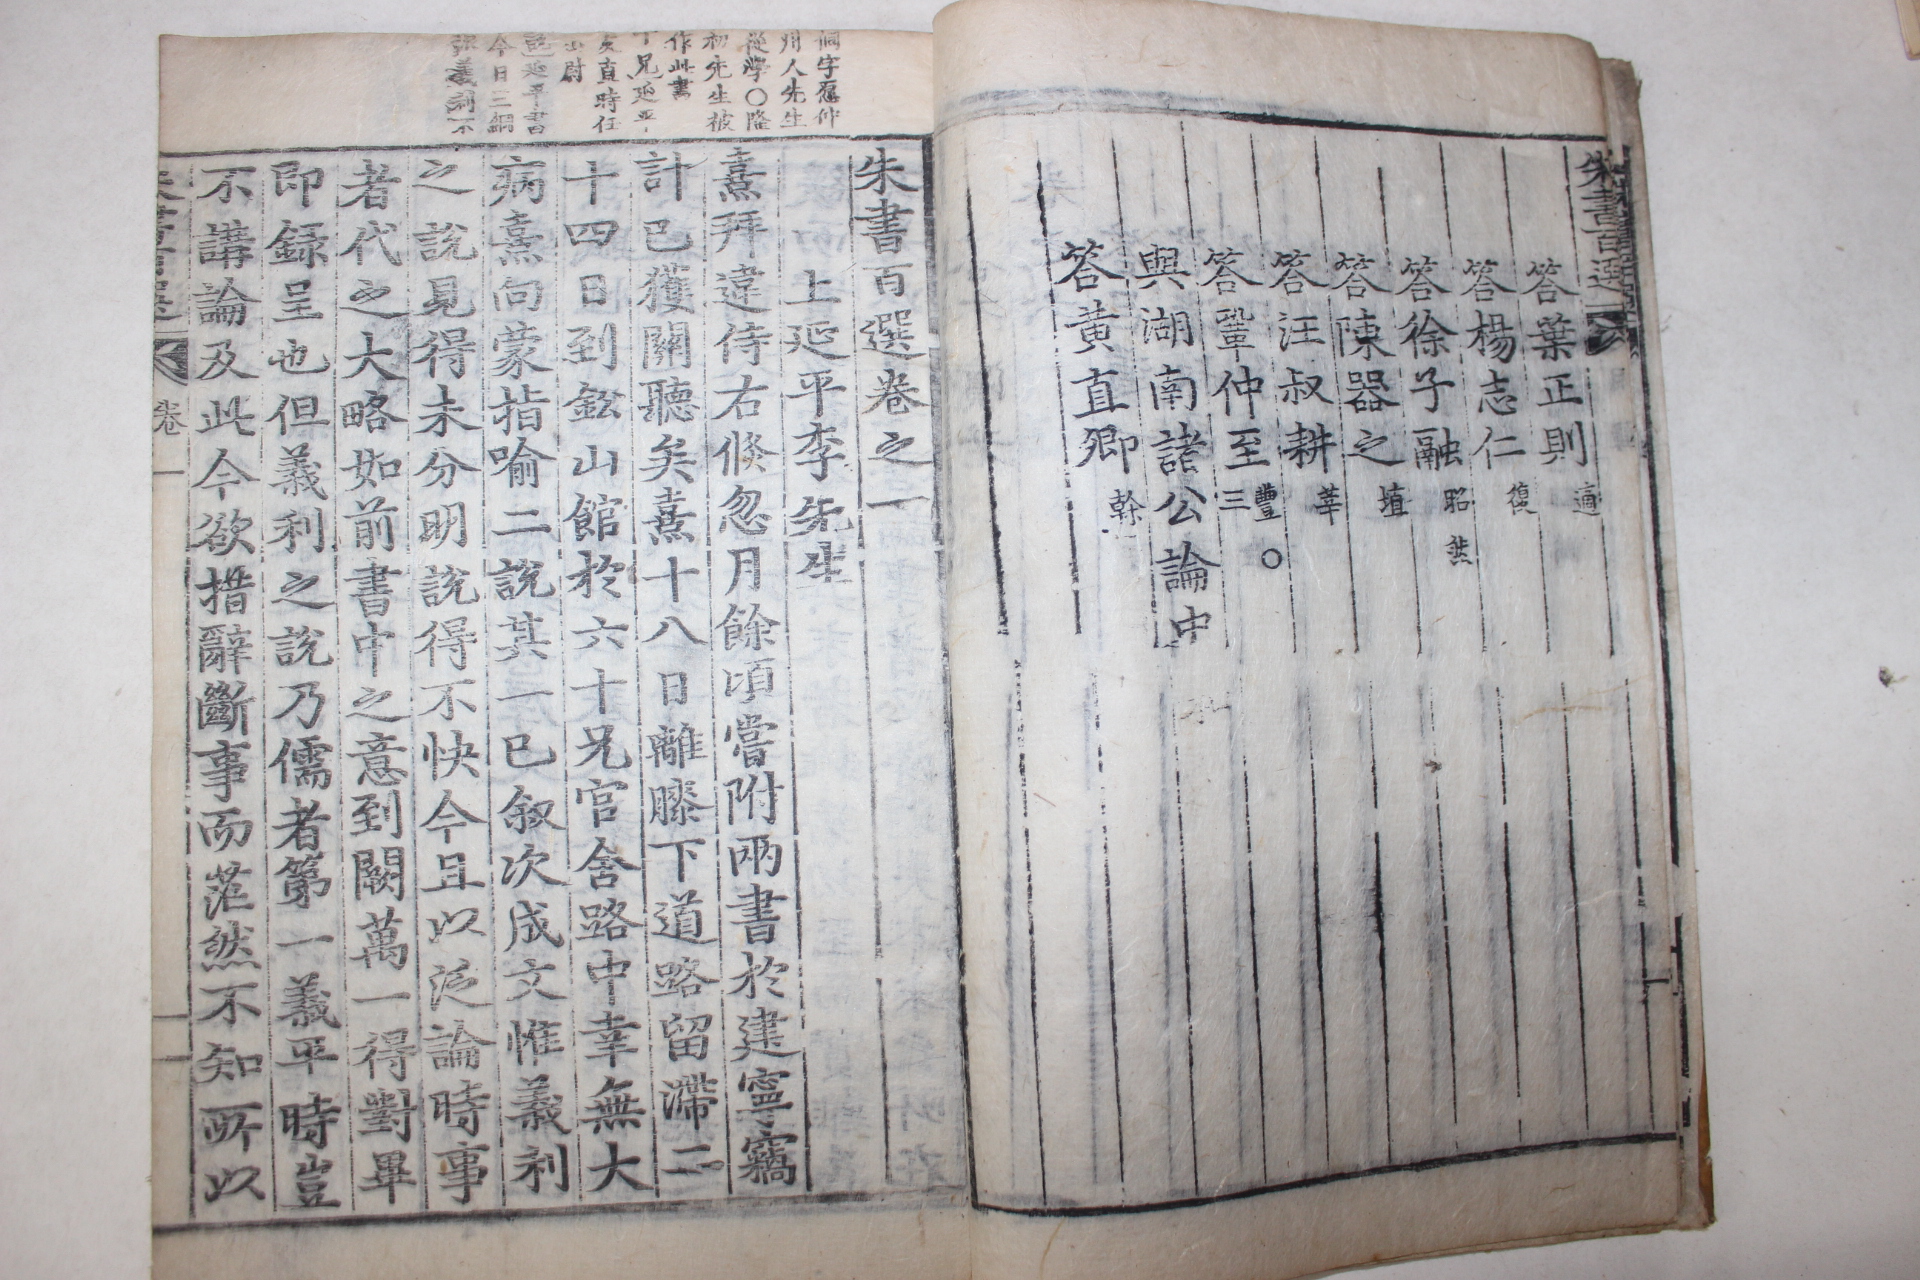 朱書百選
答葉正則 適
答楊志仁 復
答徐子融 昭然
答陳器之 埴
答汪叔耕 莘
答鞏仲至 豐〇三
與湖南諸公論中
答黃直卿 榦
侗字愿仲
州人先生
從學〇隆
初先生被
作此書
丁兄延平
尤直時任
山尉
延平書
今日三綱
義利不
朱書百選卷之一
上延平李先生
熹拜違侍右倏忽月餘頃嘗附兩書於建寧竊
計已獲關聽矣熹十八日離膝下道路留滯二
十四日到鉛山館於六十兄官舍路中幸無大
病熹向蒙指喻二說其一已叙次成文惟義利
之說見得未分明說得不快今且以泛論時事
者代之大略如前書中之意到闕萬一得對畢
即錄呈也但義利之說乃儒者第一義平時豈
不講論及此今欲措辭斷事而茫然不知所以
卷一